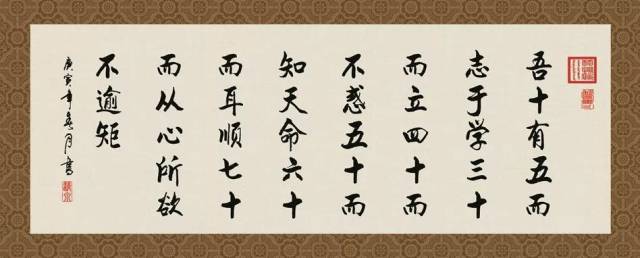 吾十有五而
志于学三十
而立四十而
不惑五十而
知天命六十
而耳順七十
而从心所欲
不逾矩
庚寅年月書